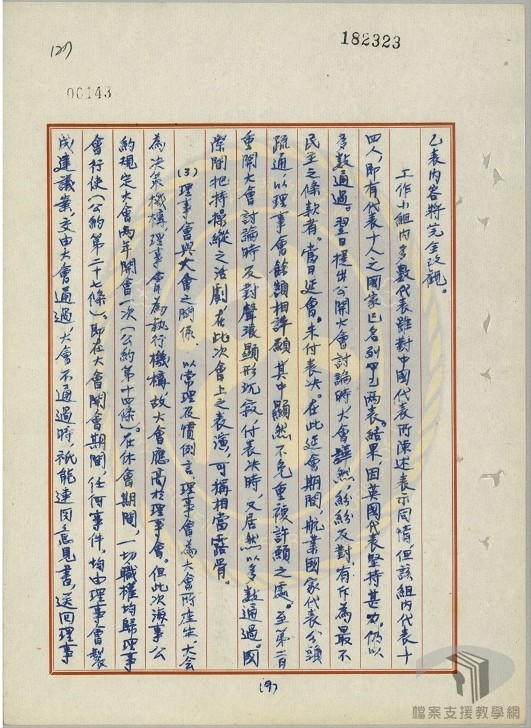 182323
(27)
00143
乙表內容將完全改觀。
工作小組內多數代表雖對中國代表所陳述表示同情但該組內代表十
四人,即有代表十人之國家已名列甲乙兩表。結果,因英國代表堅持甚力,仍以
多數通過。翌日提出公開大會討論時,大會譁然,紛紛反對,有斥為最不
民主之條款者。當日延會。未付表決。在此延會期間,航業國家代表分頭
疏通以理事會餘額相許願其中顯然不免重複許願之處。至第二日
重開大會討論時反對聲浪顯形沉寂,付表決時,又居然以多數通過。國
際間把持操縱之活劇,在此次會上之表演,可稱相當露骨。
(3)理事會與大會之關係. 以常理及慣例言理事會為大會所產生大會
為決策機構,理事會為執行機構,故大會應高於理事會。但此次海事公
約規定大會兩年開會一次(公約第十四條)。在休會期間,一切職權均歸理事
會行使(公約第二十七條)。即在大會開會期間,任何事件,均由理事會製
成建議案,交由大會通過,大會不通過時,祇能連同意見書,送回理事
(9)
檔案支援教學網